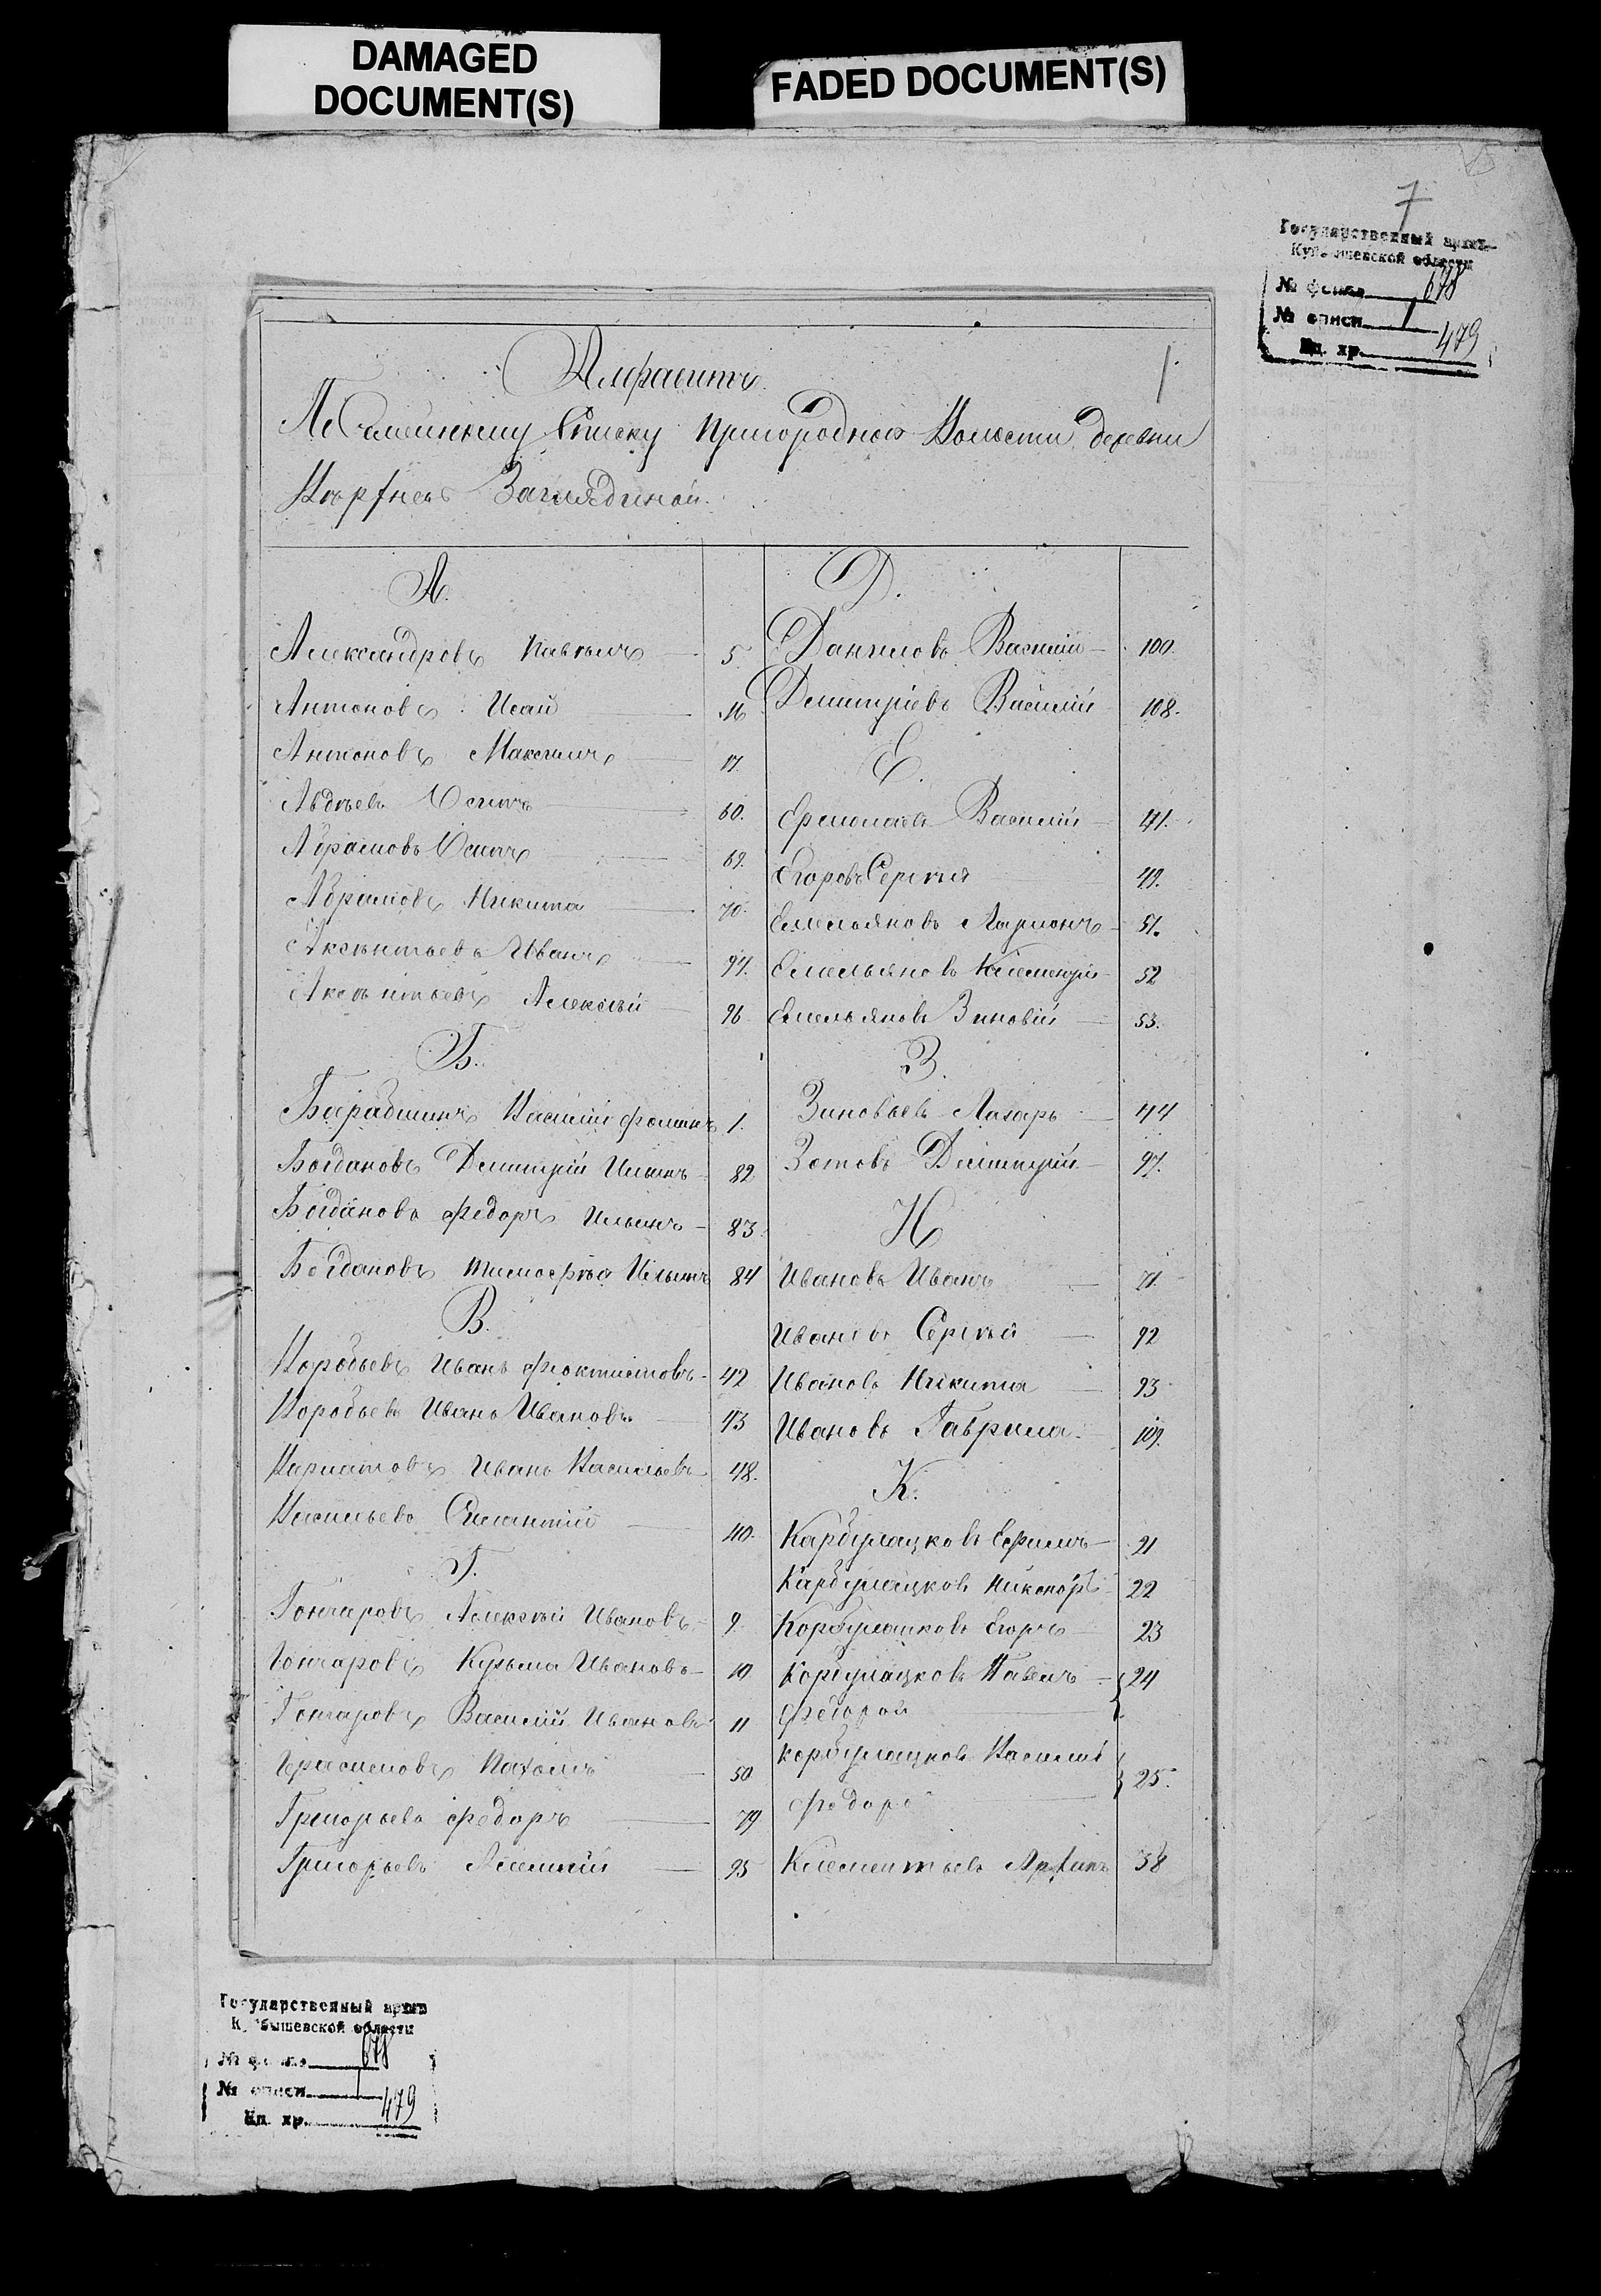 DAMAGED
DOCUMENT(S)
FADED DOCUMENT(S)
7
Государственный архив
Куйбышевской области
№ фонда 678
№ описи 1
Ед. хр. 479
Алфавитъ
1
По Семейному Списку Пригородной Волости деревни
Заглядиной.
А.
Александровъ Павелъ 5
Антоновъ Исай 16
Антоновъ Максимъ 17.
Авдѣевъ Осипъ 60.
Абрамовъ Осипъ 69.
Абрамовъ Никита 70.
Аксѣнтьевъ Иванъ 94.
Аксѣнтьевъ Алексѣй 96
Б.
Барабшинъ Василій Фоминъ 1.
Богдановъ Дмитрій Ильинъ 82
Богдановъ Федоръ Ильинъ 83
Богдановъ Тимофѣй Ильинъ 84
В.
Воробьевъ Иванъ Феоктистовъ 42
Воробьевъ Иванъ Ивановъ 43
Иванъ Васильевъ 48.
Васильевъ 40.
Г.
Гончаровъ Алексѣй Ивановъ 9.
Гончаровъ Кузьма Ивановъ 10
Гончаровъ Василій Ивановъ 11
Герасимовъ Пахомъ 50
Григорьевъ Федоръ 79
Григорьевъ 95
Д.
Даниловъ Василій 100.
Дмитріевъ Василій 108.
Е.
Ермолаевъ Василій 41.
Егоровъ Сергѣй 49.
Емельяновъ Ларионъ 51.
Емельяновъ Климентій 52
Емельяновъ Зиновій 53.
З.
Зиновьевъ Лазарь 44
Зотовъ Дмитрій 97.
И
Ивановъ Иванъ 71.
Ивановъ Сергѣй 92
Ивановъ Никита 93
Ивановъ Гаврила 109.
К.
Карбулацковъ Ефимъ 21
Карбулацковъ Никаноръ 22
Корбулацковъ Егоръ 23
Корбулацковъ Павелъ 24
Федоров
Корбулацковъ Василій 25.
Федоро
Клементьевъ Архипъ 38
Государственный архив
Куйбышевской области
№ фонда 678
№ описи 1
Ед. хр. 479